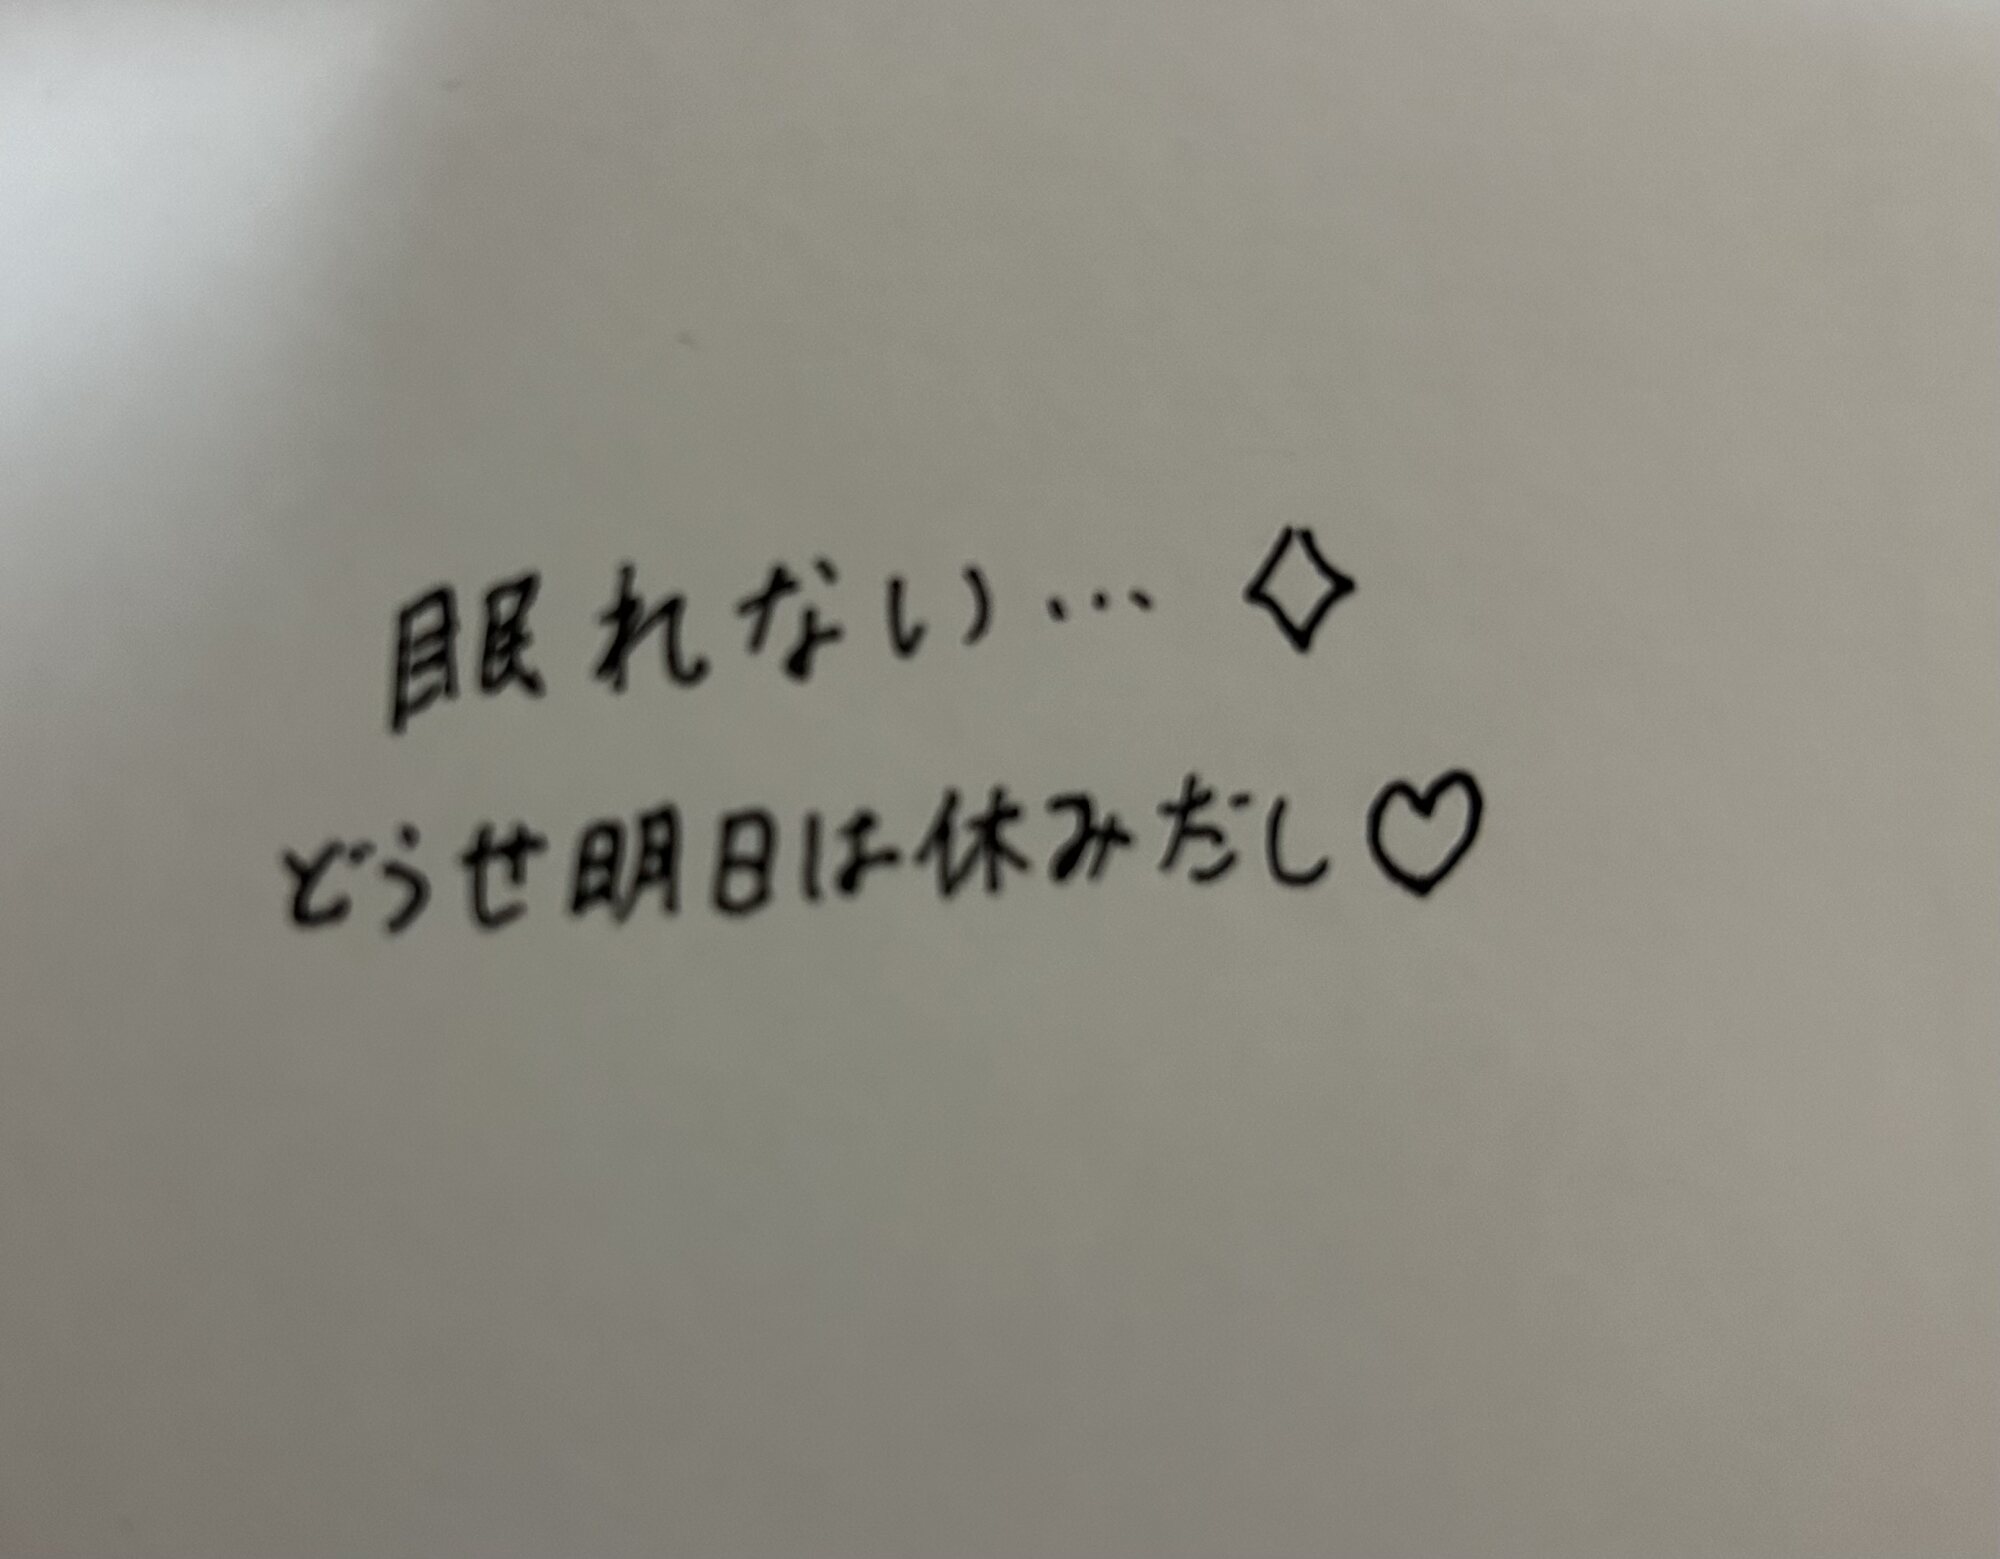 眠れない… ✧
どうせ明日は休みだし♡